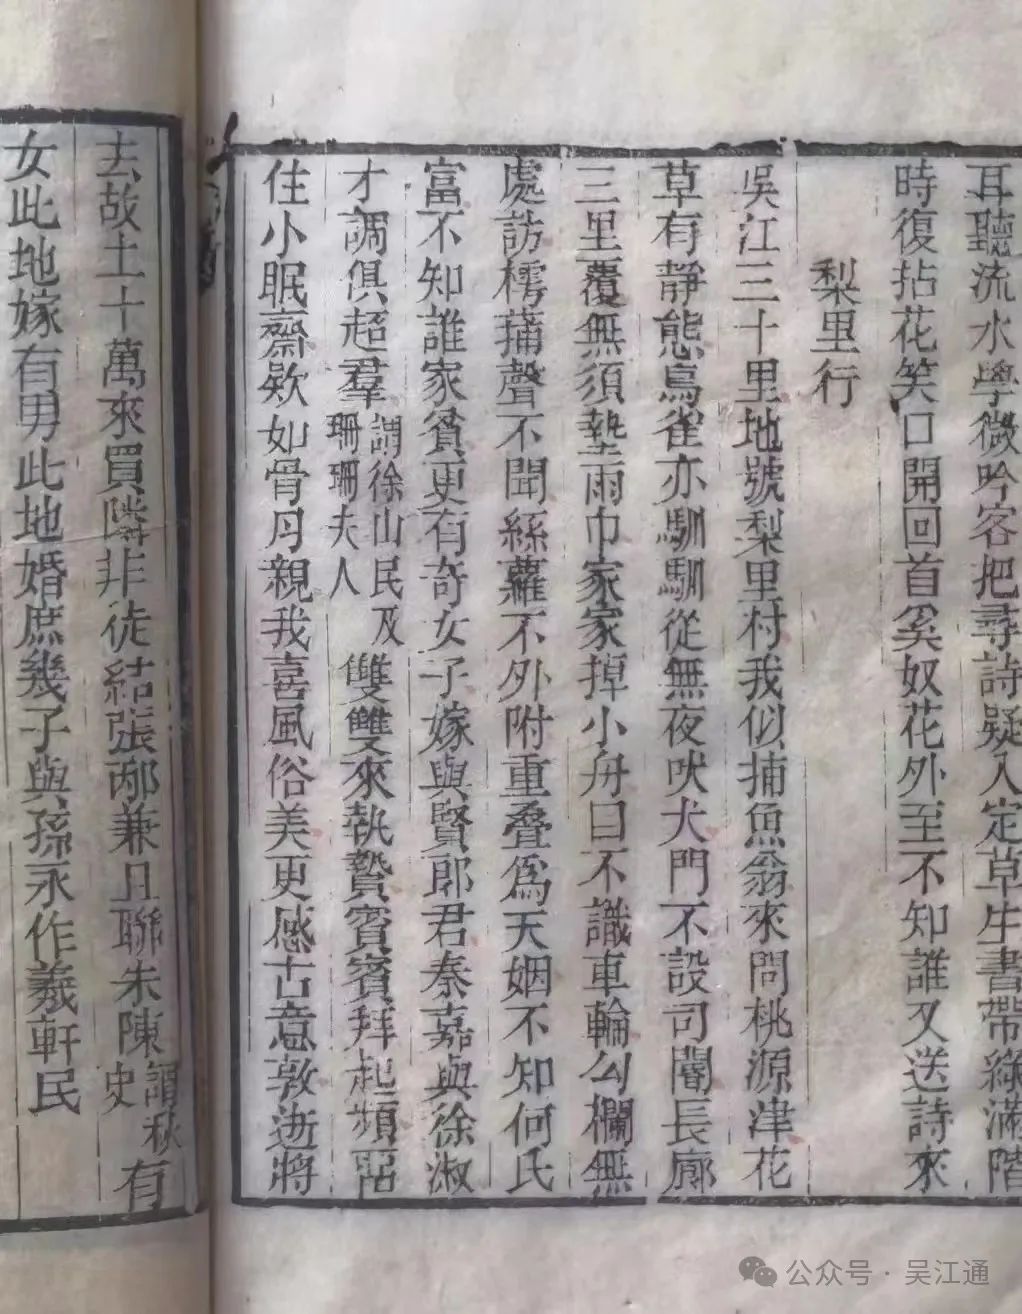 耳聽流水學微吟客把尋詩疑入定草生書帶綠滿階
時復拈花笑口開回首奚奴花外至不知誰又送詩來
梨里行
吳江三十里地號梨里村我似捕魚翁來問桃源津花
草有靜態鳥雀亦馴馴從無夜吠犬門不設司閽長廊
三里覆無須墊雨巾家家掉小舟曰不識車輪勾欄無
處訪樗蒲聲不聞絲蘿不外附重叠爲天姻不知何氏
富不知誰家貧更有奇女子嫁與賢郎君秦嘉與徐淑
才調俱超羣謂徐山民及珊珊夫人雙雙來執贄賓賓拜起頻
住小眠齋欵如骨肉親我喜風俗美更感古意敦逝將
去故土十萬來買隣非徒結張邴兼且聯朱陳謂秋史有
女此地嫁有男此地婚庶幾子與孫永作羲軒民
公众号·吴江通